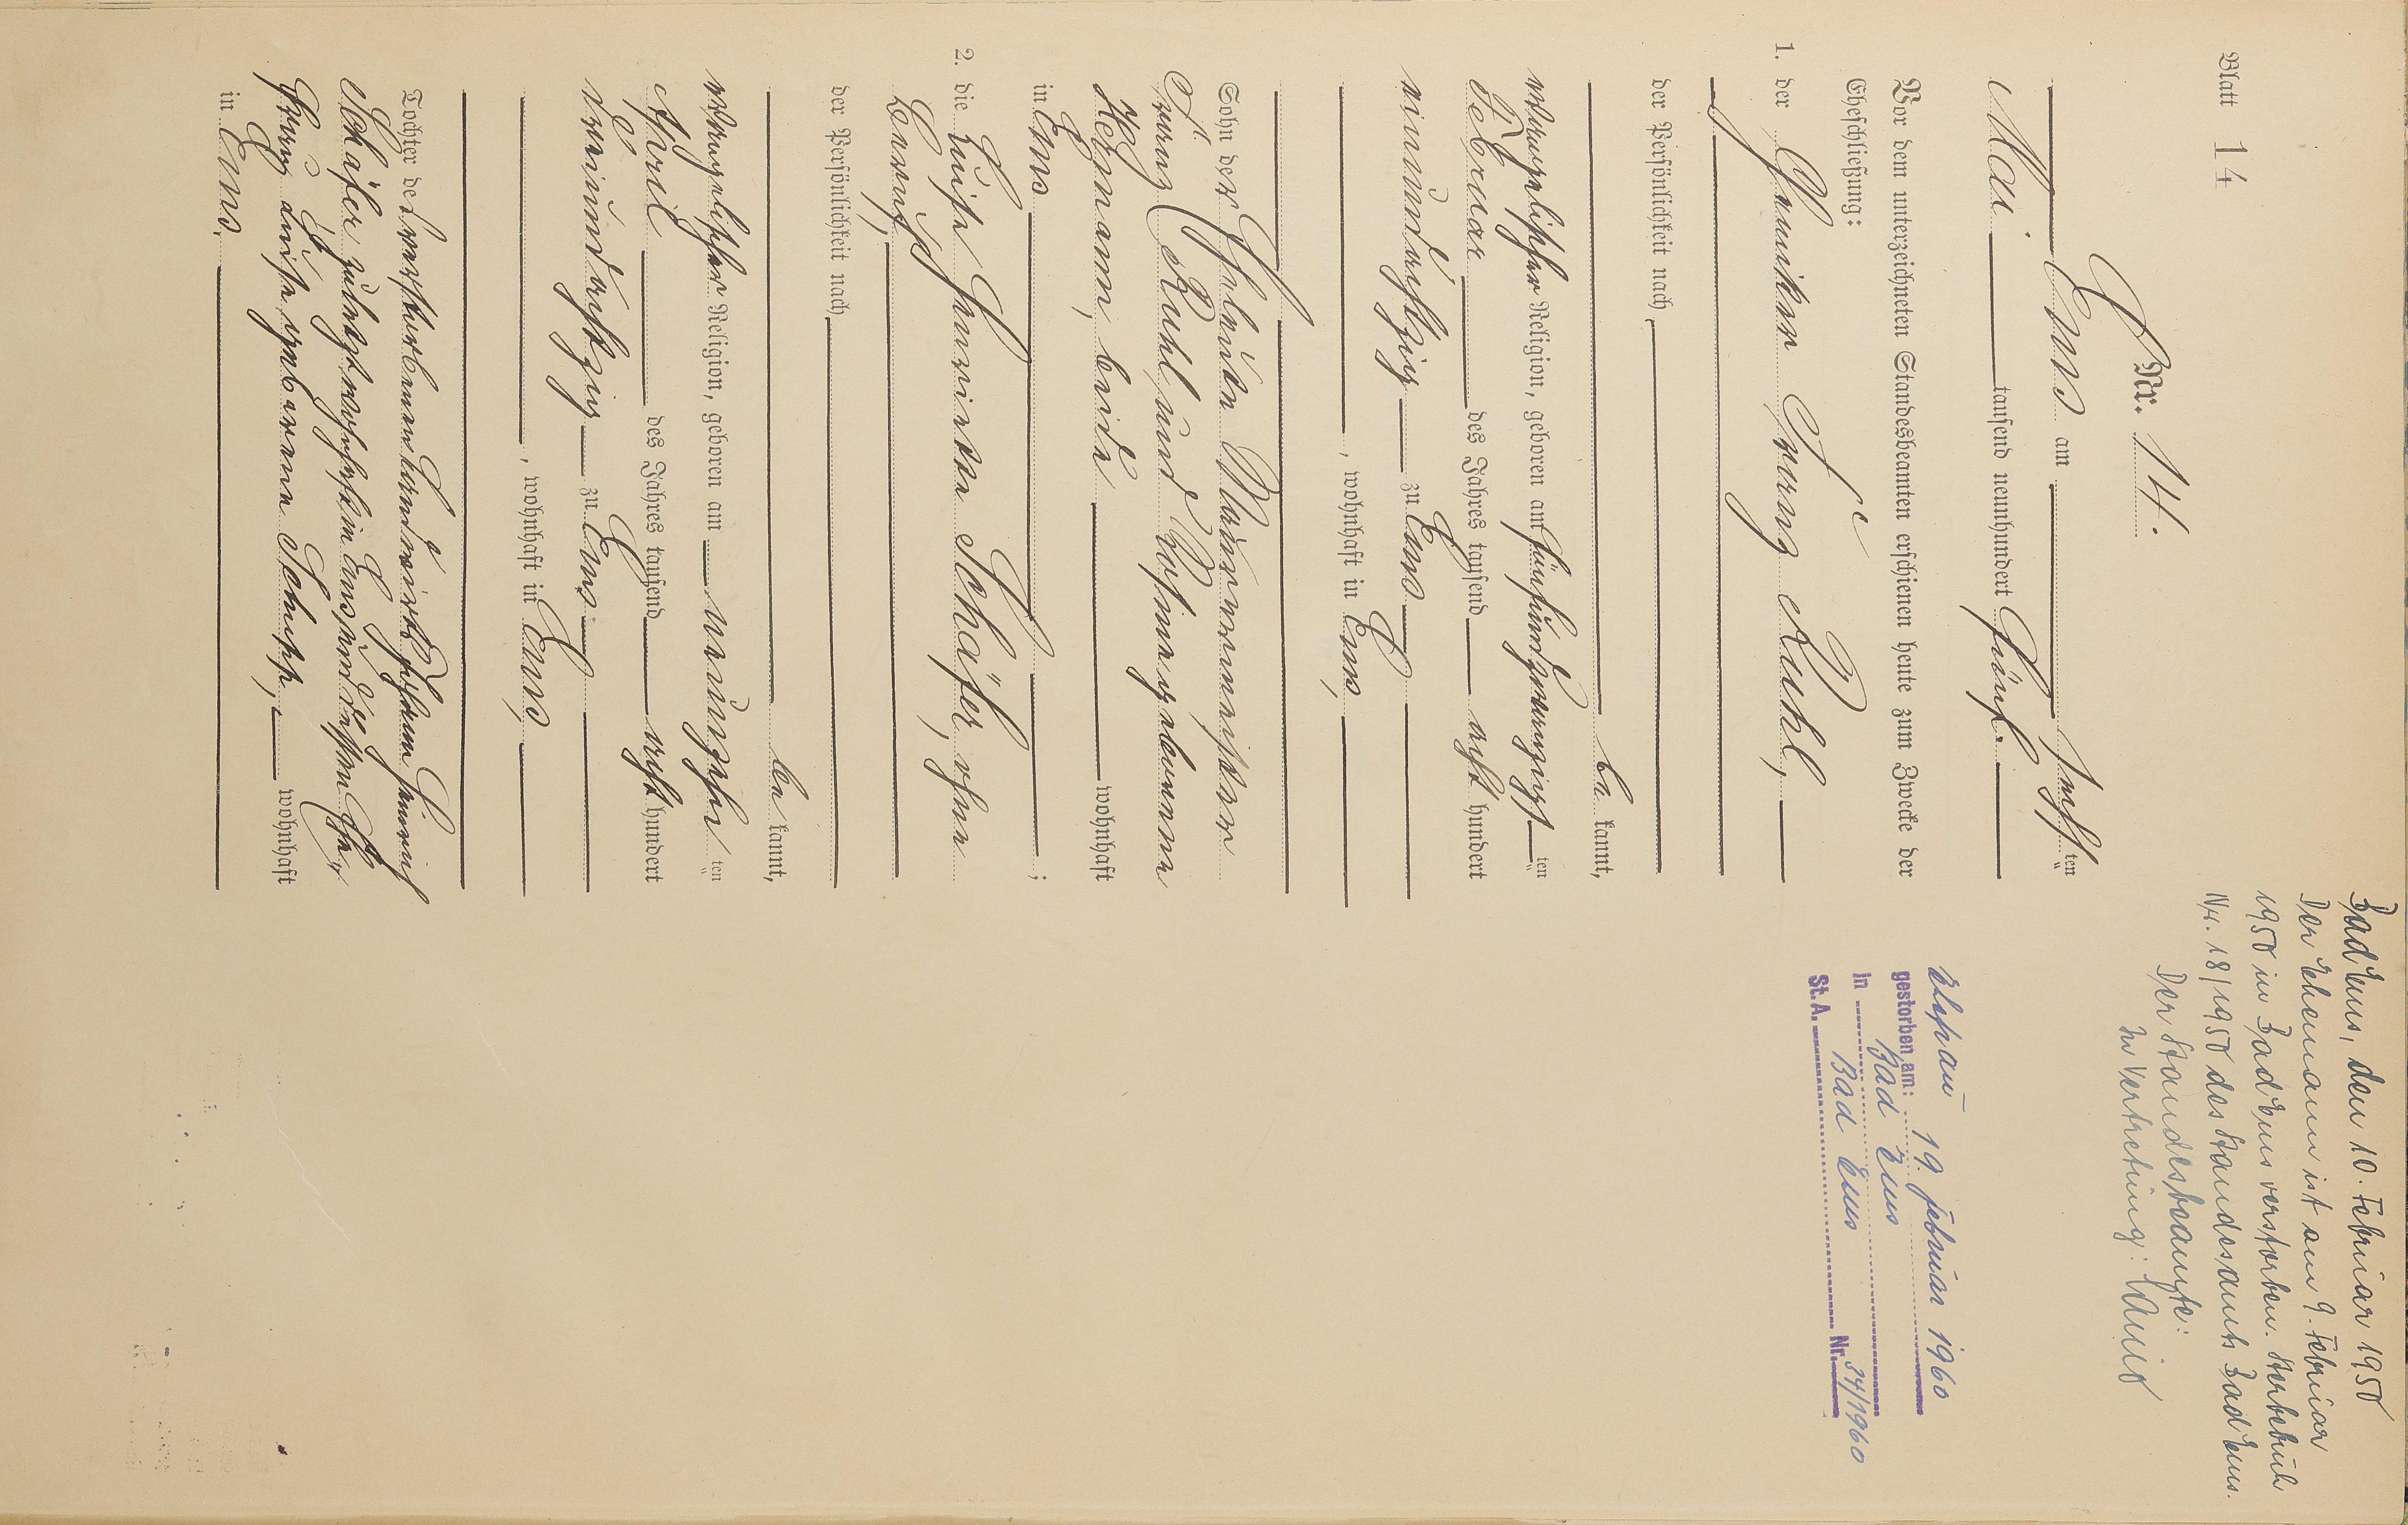 Blatt 14
Nr. 14.
Ems am sechsten
Mai tausend neunhundert fünf.
Vor dem unterzeichneten Standesbeamten erschienen heute zum Zwecke der
Eheschließung:
1. der Franz Ruhl,
der Persönlichkeit nach
be kannt,
evangelischer Religion, geboren am fünfundzwanzigsten
Februar des Jahres tausend acht hundert
einundachtzig zu Ems
, wohnhaft in Ems,
Sohn der Eheleute Maurermeister
Franz Ruhl und geborene
Hermann, beide wohnhaft
in Ems ;
2. die Luise Henriette Schäfer, ohne
Beruf,
der Persönlichkeit nach
be kannt,
evangelischer Religion, geboren am neunzehnten
April des Jahres tausend acht hundert
dreiundachtzig zu Ems
, wohnhaft in Ems,
Tochter des verstorbenen Landwirts Heinrich
Schäfer zuletzt wohnhaft in Ems und dessen Ehe
frau Luise geborene Schupp, wohnhaft
in Ems,
Bad Ems, den 10. Februar 1950
Der Ehemann ist am 9. Februar
1950 in Bad Ems verstorben. Sterbebuch
Nr. 18/1950 des Standesamts Bad Ems.
Der Standesbeamte:
In Vertretung:
Ehefrau
gestorben am: 19. Februar 1960
in Bad Ems
St. A. Bad Ems Nr. 34/1960